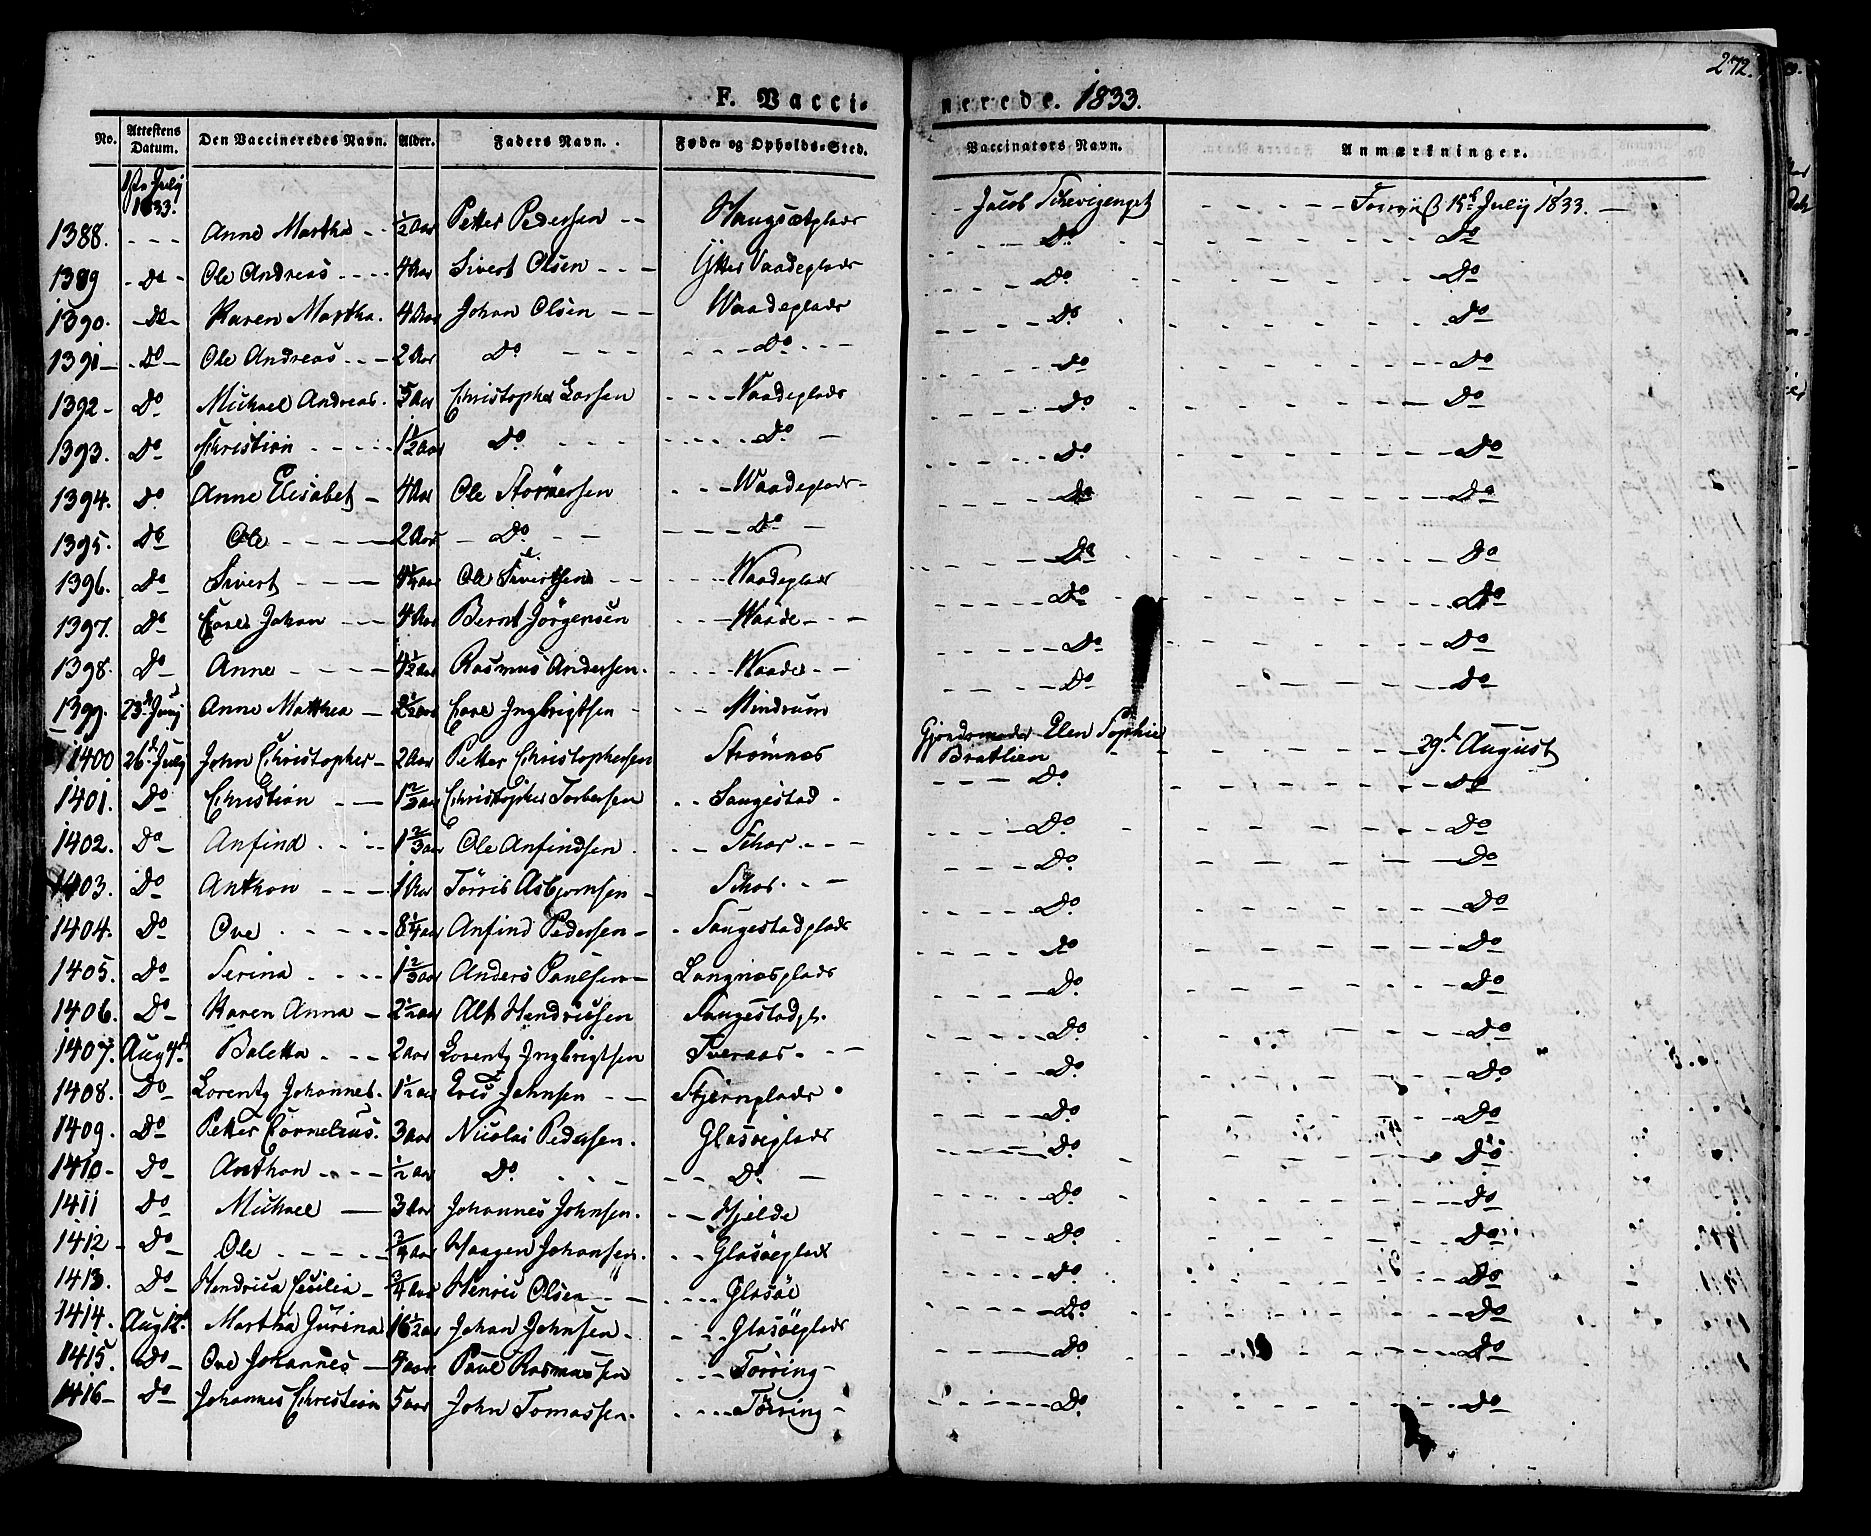 272.
F. Vaccinerede. 1833.
No. Attestens Datum. Den Vaccineredes Navn. Alder. Faders Navn. Føde- og Opholds-Sted. Vaccinators Navn. Anmærkninger.
1ste July 1833.
1388. - - - Anne Martha - - 1/2 Aar Petter Pedersen - - Haugsætplads - - Jacob - - - - - 15de July 1833.
1389 - Do - Ole Andreas - - - - 4 Aar Sivert Olsen - - - Ytter Vaadeplads Do Do
1390. - Do - Karen Martha. 4 Aar Johan Olsen - - Waadeplads Do Do
1391 - Do - Ole Andreas - - - 2 Aar Do - - - Do Do Do
1392 - Do Michael Andreas. 5 Aar Christopher Larsen - - - - Vaadeplads Do Do
1393. Do Christian - - - - 1 1/2 Aar Do - - - Do Do Do
1394. Do Anne Elisabet - 4 Aar Ole Størkersen - - - Waadeplads - Do Do
1395. Do Ole - - - - 2 Aar - Do - - Do Do Do
1396. Do Sivert - - - 4 1/4 aar Ole Sivertsen - - Waadeplads Do Do
1397. Do Carl Johan - - 4 Aar Bernt Jörgensen - - - Waade - - Do Do
1398. Do Anne - - - - 4 1/2 aar Rasmus Andersen. - - Waade - - Do Do
1399. 23de Juny Anne Matthea - 2 1/2 aar Carl Ingbrigtsen - - - Mindrum Do Do
1400 26de July John Christopher - 2 Aar Petter Christophersen Strømnes Gjordemoder Elen Sophie Bratlien 29de August
1401. Do Christian - - 1 2/3 aar Christopher Torbersen - - Saugestad - Do Do
1402. Do Anfind - - - 1 2/3 aar Ole Anfindsen - - Schar - - - Do Do
1403. Do Anthon - - - 1 Aar Törris Asbjornsen - Schar - - Do Do
1404. Do Ove - - - - 8 1/4 aar Anfind Pedersen - - Saugestadplads Do Do
1405. Do Serina - - - - 1 2/3 aar Anders Paulsen - Langnesplads Do Do
1406. Do Karen Anna - 2 1/2 aar Alf Hendricsen Saugestadpl. Do Do
1407. Aug 4de Baletta - - - 2 aar Lorentz Ingbrigtsen Tveraas - - Do Do
1408. Do Lorentz Johannes. 1 1/2 aar Eric Jahnsen - - Stjernplads Do Do
1409. Do Petter Cornelius. 3 aar Nicolai Pedersen. Glasøeplads Do Do
1410 - Do Anthon - - - 1/2 Aar Do - - - Do Do Do
1411 Do Michael - 3 Aar Johannes Johnsen. - - Hjelde Do Do
1412 - Do Ole - - - - 3/4 Aar Haagen Johansen. - - Glasøeplads Do Do
1413. Do Hendrica Cecilia - 3/4 Aar Henric Olsen - - - Glasöe Do Do
1414. Aug 12te Martha Gurina 16 1/2 aar Johan Johnsen - - - Glasöeplads Do Do
1415. Do - Ove Johannes - 4 aar Paul Rasmussen - - - Törring - Do Do
1416 - Do Johannes Christian 5 aar John Tomassen. - - - Törring - Do Do